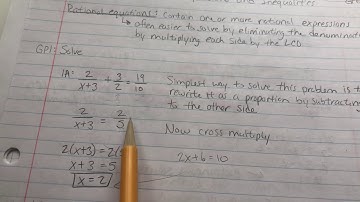 and Inequalities
Rational equations: contain one or more rational expressions
↳ often easier to solve by eliminating the denominat
by multiplying each side by the LCD
GP1: Solve
1A: 2/(x+3) + 3/2 = 19/10
Simplest way to solve this problem is t
rewrite it as a proportion by subtracting
to the other side.
2/(x+3) = 2/5
Now cross multiply
2(x+3) = 2(5
2x+6=10
x+3 = 5
x=2